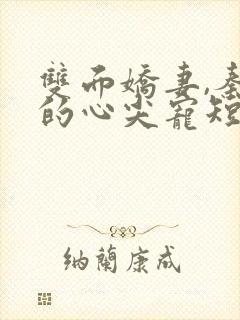 雙而嬌妻,
的心尖寵短
納蘭康成